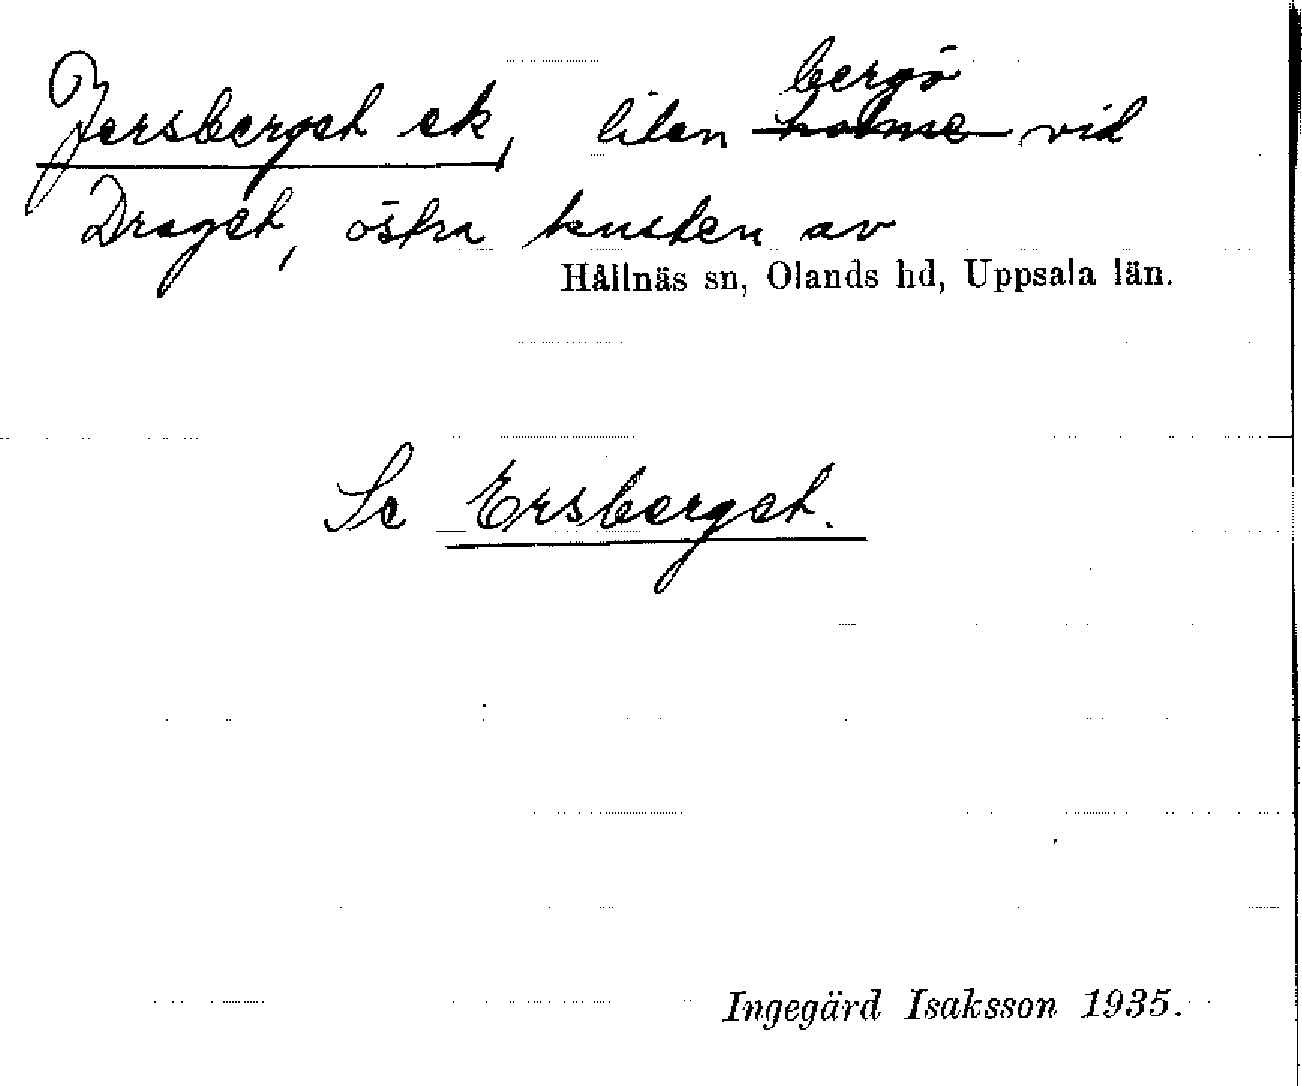 bergö
Jersberget ek, liten holme vid
Draget, östra kusten av
Hållnäs sn, Olands hd, Uppsala län.
Se Ersberget.
Ingegärd Isaksson 1935.